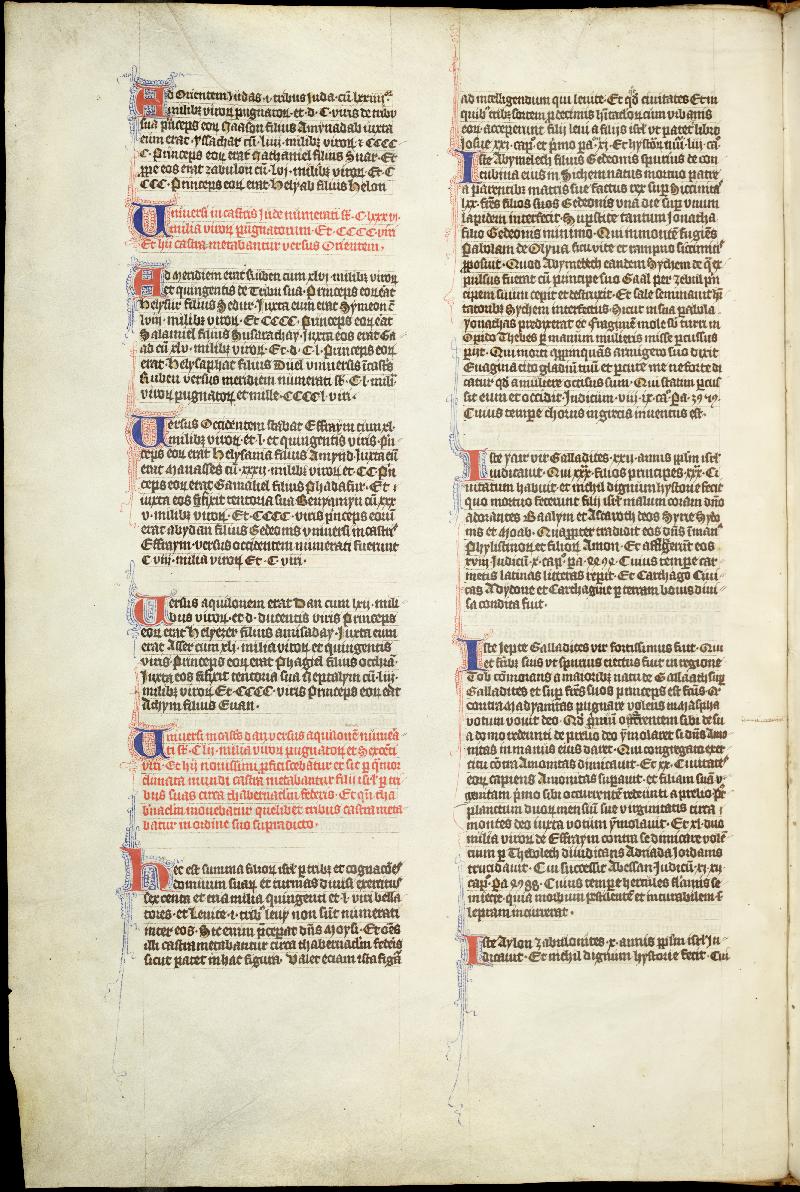 Ad Orientem Iudas .i. tribus iuda. cū lxxiiijᵒʳ
milibꝫ viroꝝ pugnatoꝝ. et .d. C. viris de tribu
sua p̄nceps eoꝝ Naason filius Amynadab iuxta
eum erat. Yſſachar cū .liiij. milibꝫ viroꝝ ⁊ CCCC
C. Princeps eoꝝ erat Nathaniel filius Suar. Et
ꝓpe eos erat zabulon cū .lvij. milibꝫ viroꝝ. Et C
CCC. Princeps eoꝝ erat Helyab filius Helon
Universi in castris Iude nūmerati ſt̄. C.lxxxvi.
milia viroꝝ pugnatorum. Et. CCCC. viri
Et hij castra metabantur versus Orientem.
Ad meridiem erat Ruben cum xlvj. milibꝫ viroꝝ
et quingentis de Tribu sua. Princeps eoꝝ erāt
Helysur filius Sedur. Iuxta eum erat Symeon c̄
lviiij. milibꝫ viroꝝ. Et CCCC. Princeps eoꝝ eāt
Salamiel filius Surisachay. Iuxta eos erat Ga
ad cū xlv. milibꝫ viroꝝ. Et .d. C. l. Princeps eoꝝ
erat Helysaphat filius Duel vniuersi ī castis
Ruben versus meridiem nūmerati ſt̄. C. l. mili
viroꝝ pugnatoꝝ et mille. CCCC l. viri.
Versus Occidentem stabat Effraym cum xl.
milibꝫ viroꝝ. et l. et quingentis viris. P̄n
ceps eoꝝ erat Helysama filius Amyud. Iuxta cū
erat Manasses cū .xxxij. milibꝫ viroꝝ et CC. P̄n
ceps eoꝝ erat Gamaliel filius Phadasur. Et
iuxta eos fixit tentoria sua Benyamyn cū xxx
v. milibꝫ viroꝝ. Et. CCCC. viris p̄nceps eorū
erat abydan filius Gedeonis vniuersi in castris
Effraym. versus occidentem numerati fuerunt
C viij. milia viroꝝ. Et. C. viri.
Versus aquilonem erat Dan cum lxij. mili
bus viroꝝ. et .d. ducentis viris Princeps
eoꝝ erat Helyezer filius amisaday. Iuxta eum
erat Asser cum xlj. milia viroꝝ et quingentis
viris. Princeps eoꝝ erat Phagiel filius ochrā.
Iuxta eos fixit tentoria sua Neptalym cū liij
milibꝫ viroꝝ. Et CCCC. viris Princeps eoꝝ erāt
Achyrn filius Euan.
Universi in castris dan versus aquilonē numera
ti ſt̄. C lvij. milia viroꝝ pugnatoꝝ et Sexcēti
viri. Et hij nouissimi ꝓficiscebātur et sic ꝑ qᵃtuor
climata mundi castra metabantur filij isrl̄ ꝑ tri
bus suas circa thabernaclm̄ federis. Et qn̄ tha
bnaclm̄ mouebatur quelibet tribus castra meta
batur in ordine suo supradicto.
Hec est summa filioꝝ isrl̄ ꝑ tribꝫ et cognacōes
domuum suaꝝ et turmas diuisi exercitus
sex centa et tria milia quingenti et l. viri bella
tores. et Leuite .i. tribꝰ leuy non sūt numerati
inter eos. Sic enim p̄cepat dn̄s Moysi. Et oēs
illi castra metabantur circa thabernaclm̄ federis
sicut patet in hac figura. Valet etiam ista figᵃ
ad intelligendum qui leuite. Et qd̄ ciuitates et in
quibꝰ tribꝫ sortem ꝑ decimis hītatōem cum vrbanis
eoꝝ. acceperunt filij leui a filijs isrl̄ vt patet libro
Iosue xxj. cap̄. et p̄mo pa. xj. Et hystōri nūi. lij cā.
Iste Abymelech filius Gedeonis spurius de con
cubina eius in Sichem natus mortuo patre
a parentibꝫ matris sue factus rex suꝑ Sycimitā
lxx. fr̄es filios suos Gedeonis vna die suꝑ vnum
lapidem interfecit. Suꝑstite tantum Ionatha
filio Gedeonis minimo. Qui in montē fugiēs
Pabolam de Olyua ficu vite et rampno siccimitis
ꝓposuit. Quod Abymelech eandem Sychem de qᵃ ex
pulsus fuerat cū principe suo Gaal per zebul p̄n
cipem suum cepit et destruxit. Et sale seminauit hīn
tatoribꝫ Sychem interfectis. Sicut in sua ꝑabola
Yonathas predixerat et fragmine mole sū turri in
Opido Thebes ꝑ manum mulieris misse percussus
perijt. Qui morti appinquās armigero suo dixit
Euagina cito gladiū tuū et ꝑcute me ne forte di
catur qd̄ a muliere occisus sum. Qui statim ꝑcus
sit eum et occidit. Iudicum .viij. ix. cā.
Cuius tempe chorus in grecia inuentus est.
Iste yair vir Galladites .xxij. annis ꝓꝑm isrl̄
iudicauit. Qui xxx. filios principes .xxx. Ci
uitatum habuit et nichil dignum hystorie fecit
quo mortuo fecerunt filij isrl̄ malum coram dn̄o
adorantes Baalym et Astaroth deos Syrie Sydo
nis et Moab. Quaꝓpter tradidit eos dn̄s ī man
Phylistinoꝝ et filioꝝ Amon. Et afflixerūt eos
xviij Iudicū .x. cap̄. Cuius tempe car
mentis latinas litteras rep̄it. Et Carthago Ciui
tas a Dydone et Carchagine ꝑ terram bouis diui
sa condita fuit.
Iste Iepte Galladites vir fortissimus fuit. Qui
et fr̄ibꝫ suis vt spurius eiectus fuit in regione
Tob cōmorans a maioribꝫ natu de Galaath suꝑ
Galladites et suꝑ fr̄es suos princeps est fctūs. Qi
contra Madyanitas pugnare volens in Maspha
votum vouit deo. Qd̄ p̄mū offerentem sibi de su
a domo redeunti de prelio deo ymolaret si dn̄s Amo
nitas in manus eius daret. Qui congregato exer
citu cōtra Amonitas dimicauit. Et xx. Ciuitates
eoꝝ capiens Amonitas suꝑauit. et filiam suā v
genitam p̄mo sibi occurrentē redeunti a prelio. p̄t
planctum duoꝝ mensiū sue virginitatis circa
montes deo iuxta votum ymolauit. Et xl. duo
milia viroꝝ de Effraym contra se dimicare volē
tium ꝑ Thebolech diiudicans Ad vada Iordanis
trucidauit. Cui successit Abessan Iudicū. xj. xij
cap̄. Cuius tempe hercules flāmis se
iniecit. quia morbum pestilentē et incurabilem
lepram incurrerat.
Iste Aylon zabulonites .x. annis ꝓꝑm isrl̄ iu
dicauit. Et nichil dignum hystorie fecit. Cui